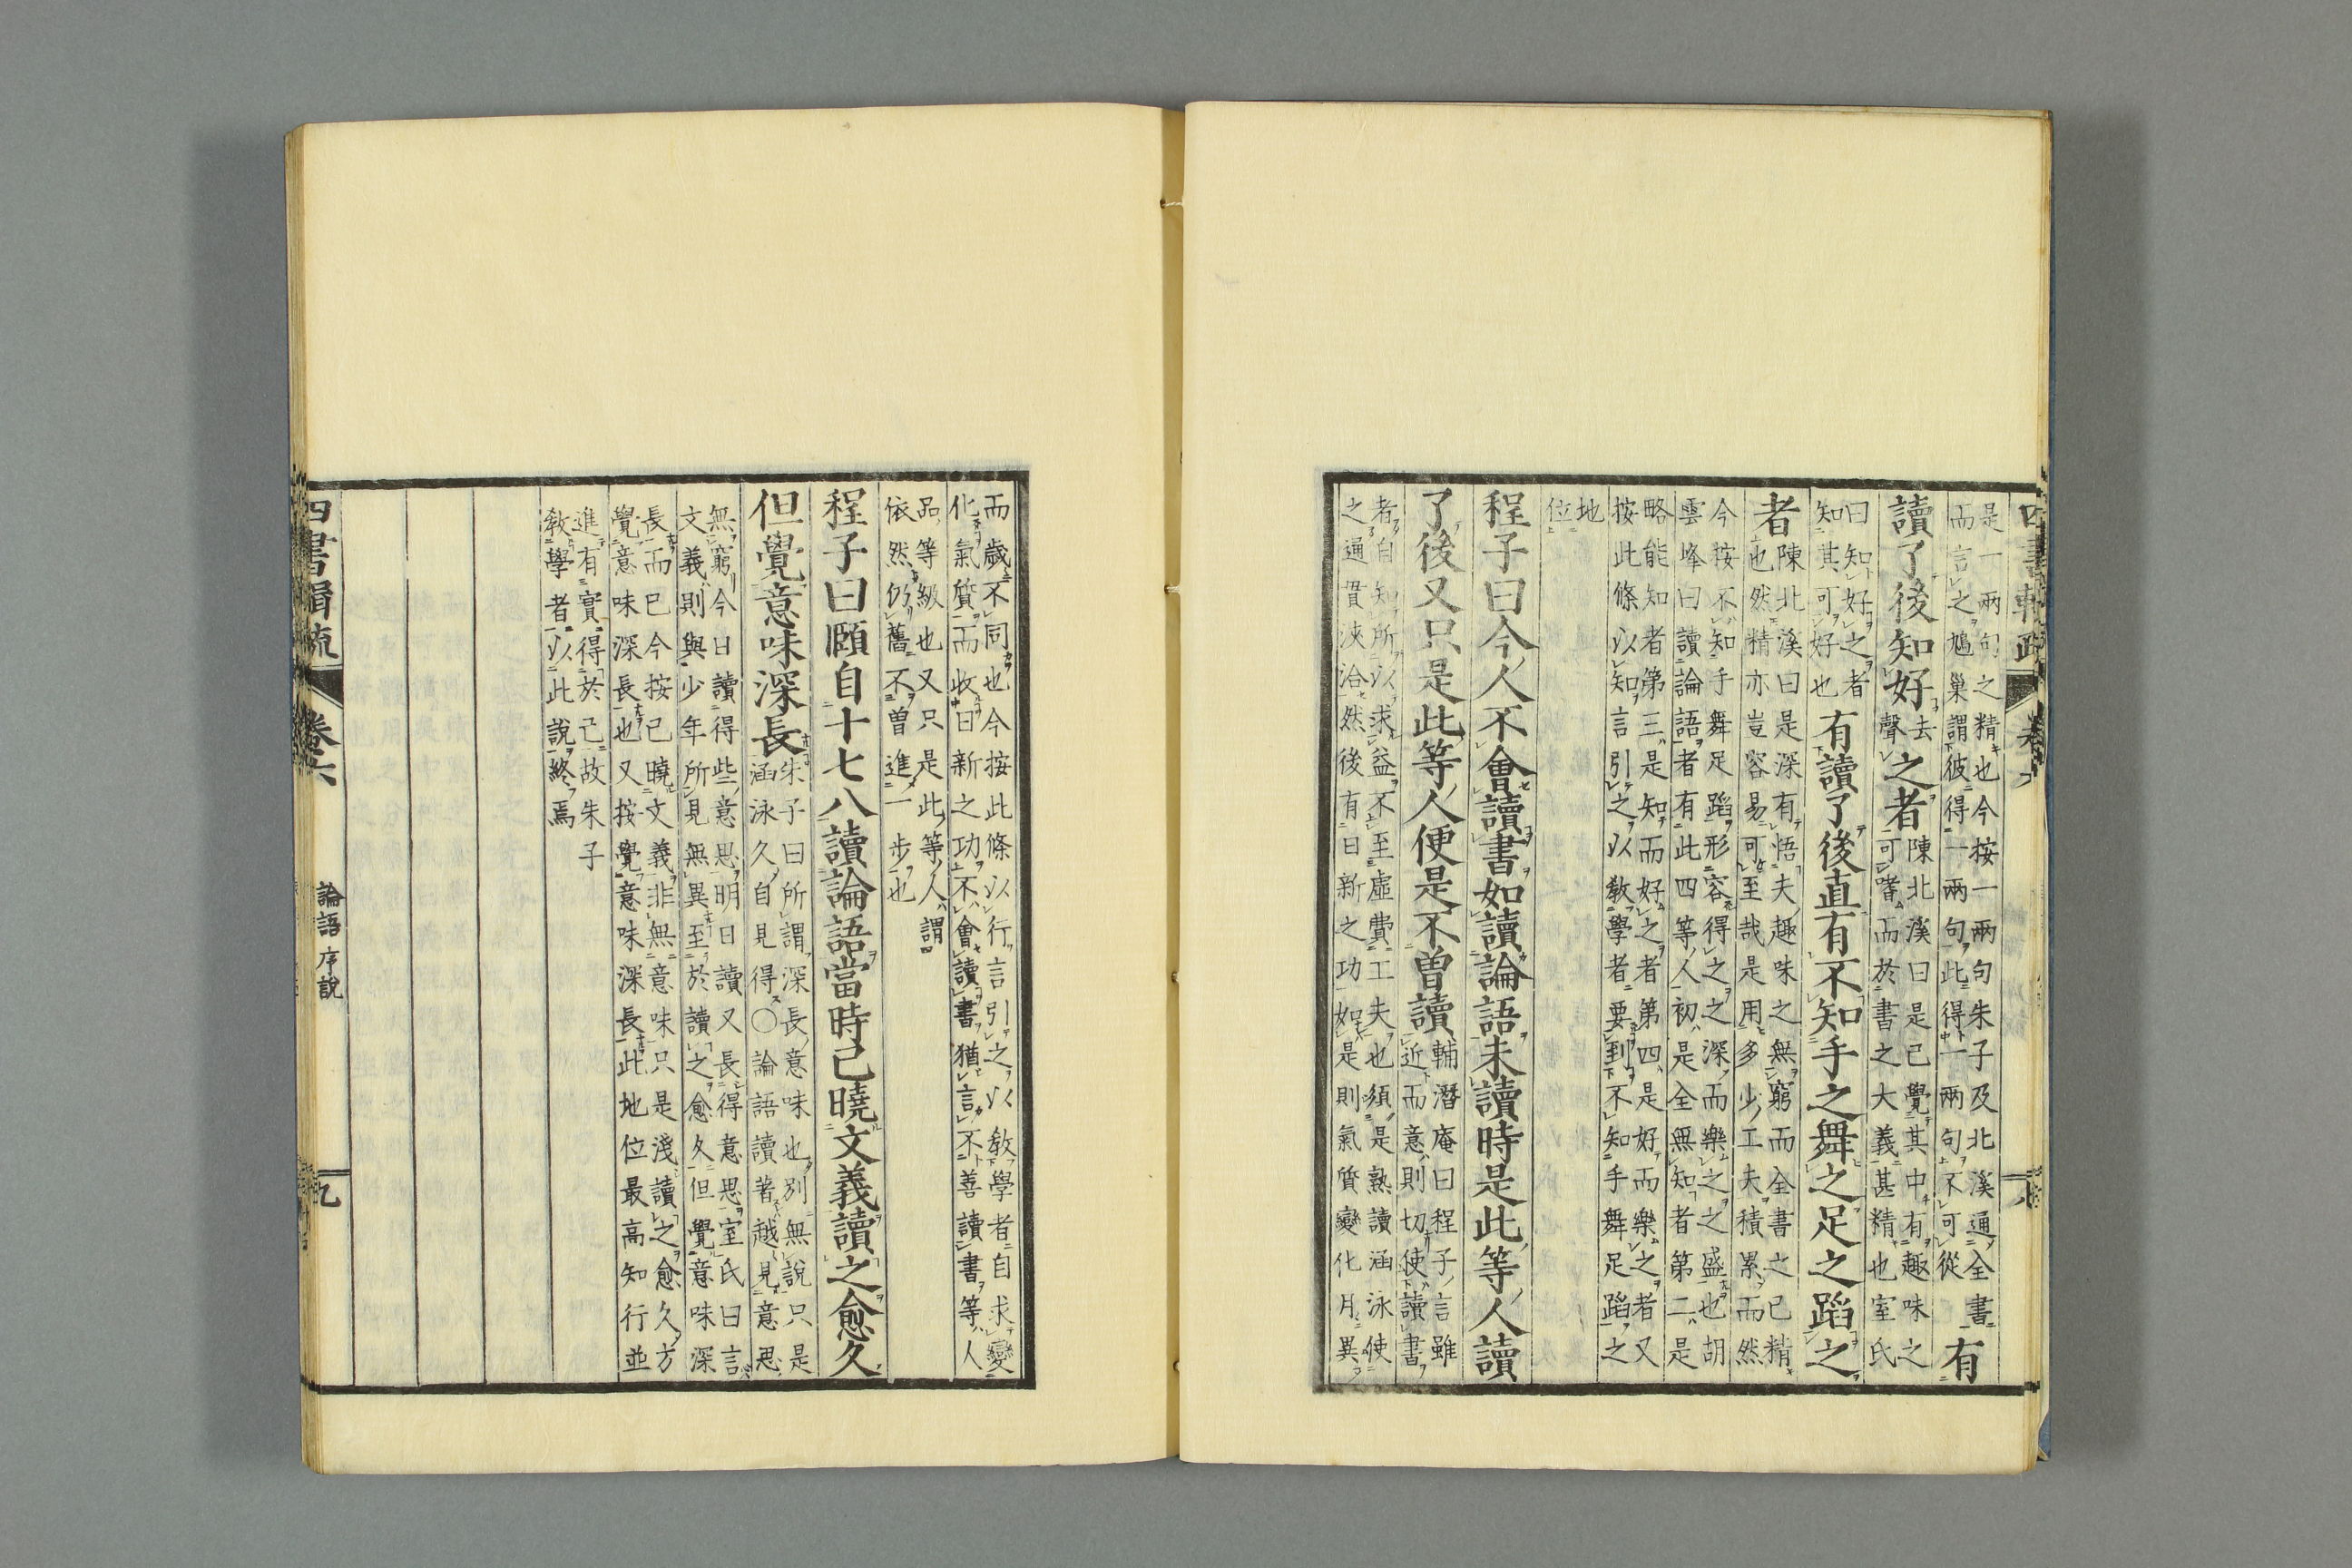 是一兩句之精也今按一兩句朱子及北溪通全書
而言之鳩巢謂彼得一兩句此得一兩句不可從
有
讀了後知好
去
聲
之者
陳北溪曰是已覺其中有趣味之
可嗜而於書之大義甚精也室氏
曰知好之者
知其可好也
有讀了後直有不知手之舞之足之蹈之
者
陳北溪曰是深有悟夫趣味之無窮而全書之已精
也然精亦豈容易可至哉是用多少工夫積累而然
今按不知手舞足蹈形容得之之深而樂之之盛也胡
雲峰曰讀論語者有此四等人初是全無知者第二是
略能知者第三是知而好之者第四是好而樂之者又
按此條以知言引之以教學者要到不知手舞足蹈之
地
位
程子曰今人不會讀書如讀論語未讀時是此等人讀
了後又只是此等人便是不曽讀
輔潛庵曰程子言雖
近而意則切使讀書
者自知所以求益不至虛費工夫也須是熟讀涵泳使
之通貫浹洽然後有日新之功如是則氣質變化月異
而歲不同也今按此條以行言引之以教學者自求變
化氣質而收日新之功不會讀書猶言不善讀書等人
品等級也又只是此等人謂
依然仍舊不曽進一步也
程子曰頤自十七八讀論語當時已曉文義讀之愈久
但覺意味深長
朱子曰所謂深長意味也別無說只是
涵泳久自見得〇論語讀著越見意思
無窮今日讀得些意思明日讀又長得意思室氏曰言
文義則與少年所見無異至於讀之愈久但覺意味深
長而已今按已曉文義非無意味只是淺讀之愈久方
覺意味深長也又按覺意味深長此地位最高知行並
進有實得於己故朱子
敎學者以此說終焉
四書輯疏
卷六
論語 序說
九